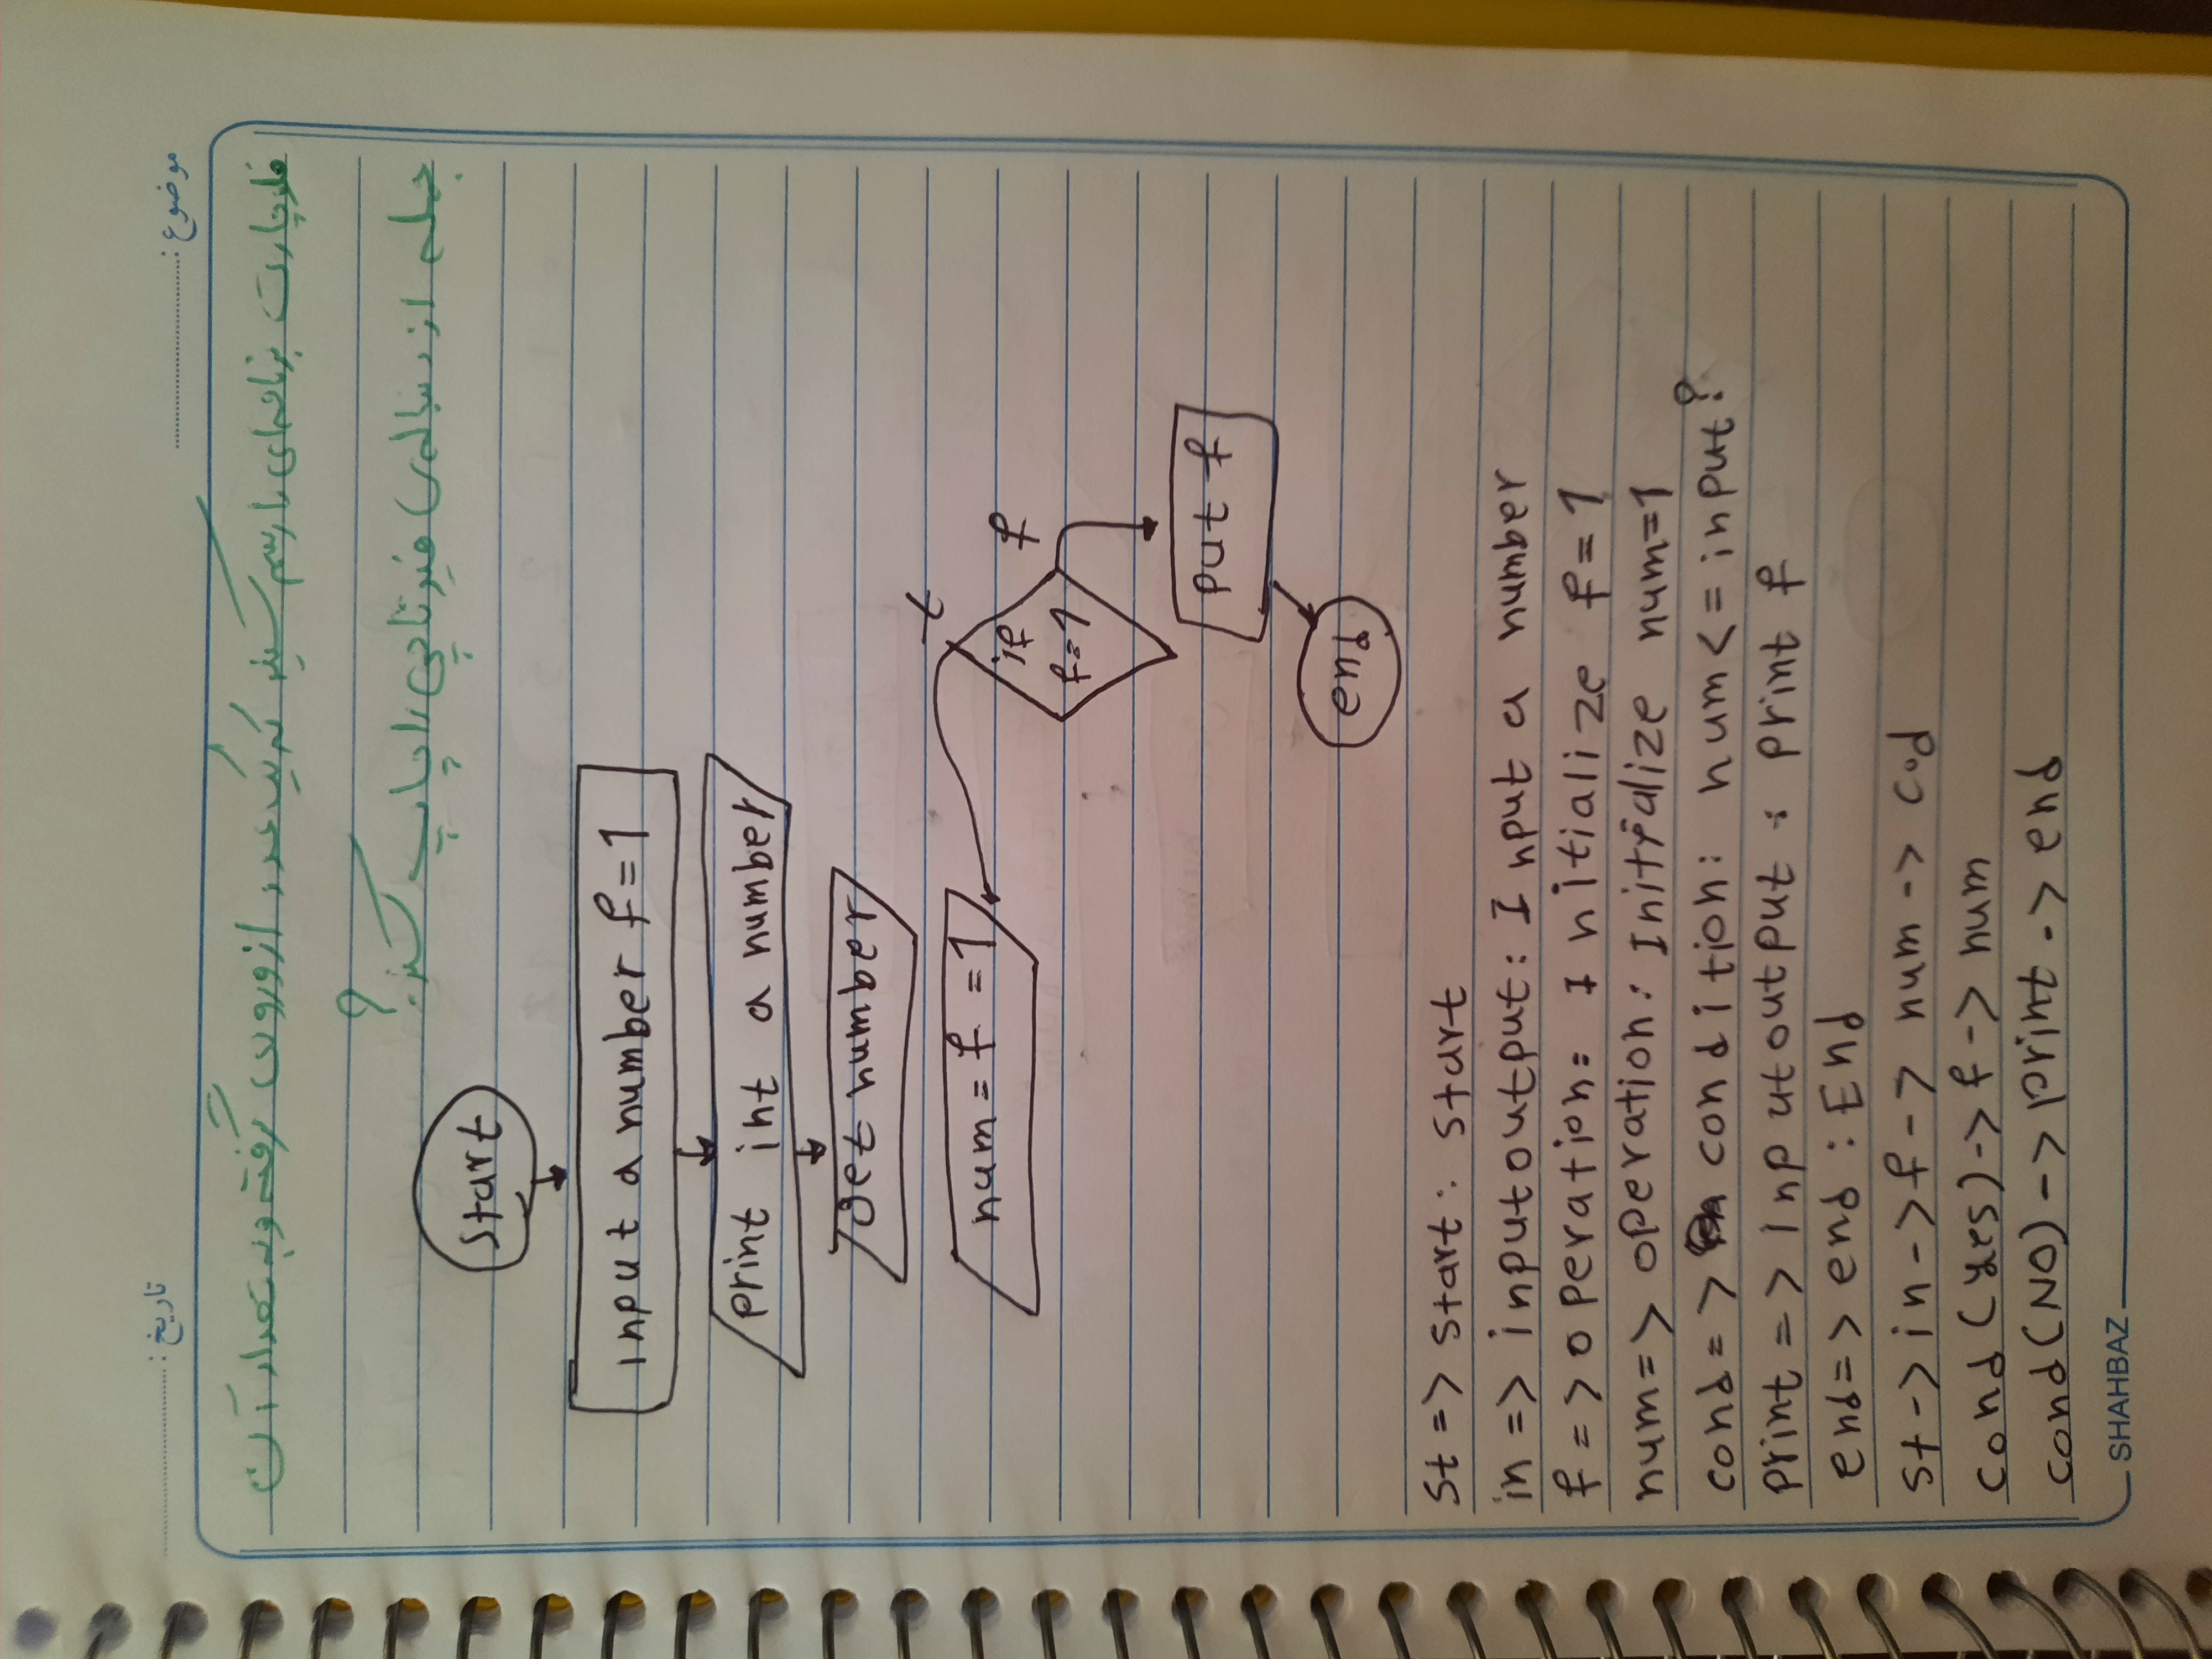 موضوع:
تاریخ:
فلوچارت برنامه‌ای را رسم کنید که یک عدد از ورودی گرفته و به تعداد آن
جمله از دنباله‌ی فیبوناچی را چاپ کند؟
start
input a number f=1
print int a number
get number
t
num = f = 1
if
f=1
f
put f
end
st => start: start
in => inputoutput: Input a number
f => operation: Initialize f=1
num => operation: Initialize num=1
cond => condition: num <= input?
print => Inputoutput: print f
end => end : End
st -> in -> f -> num -> cod
cond (yes) -> f -> num
cond (NO) -> print -> end
SHAHBAZ